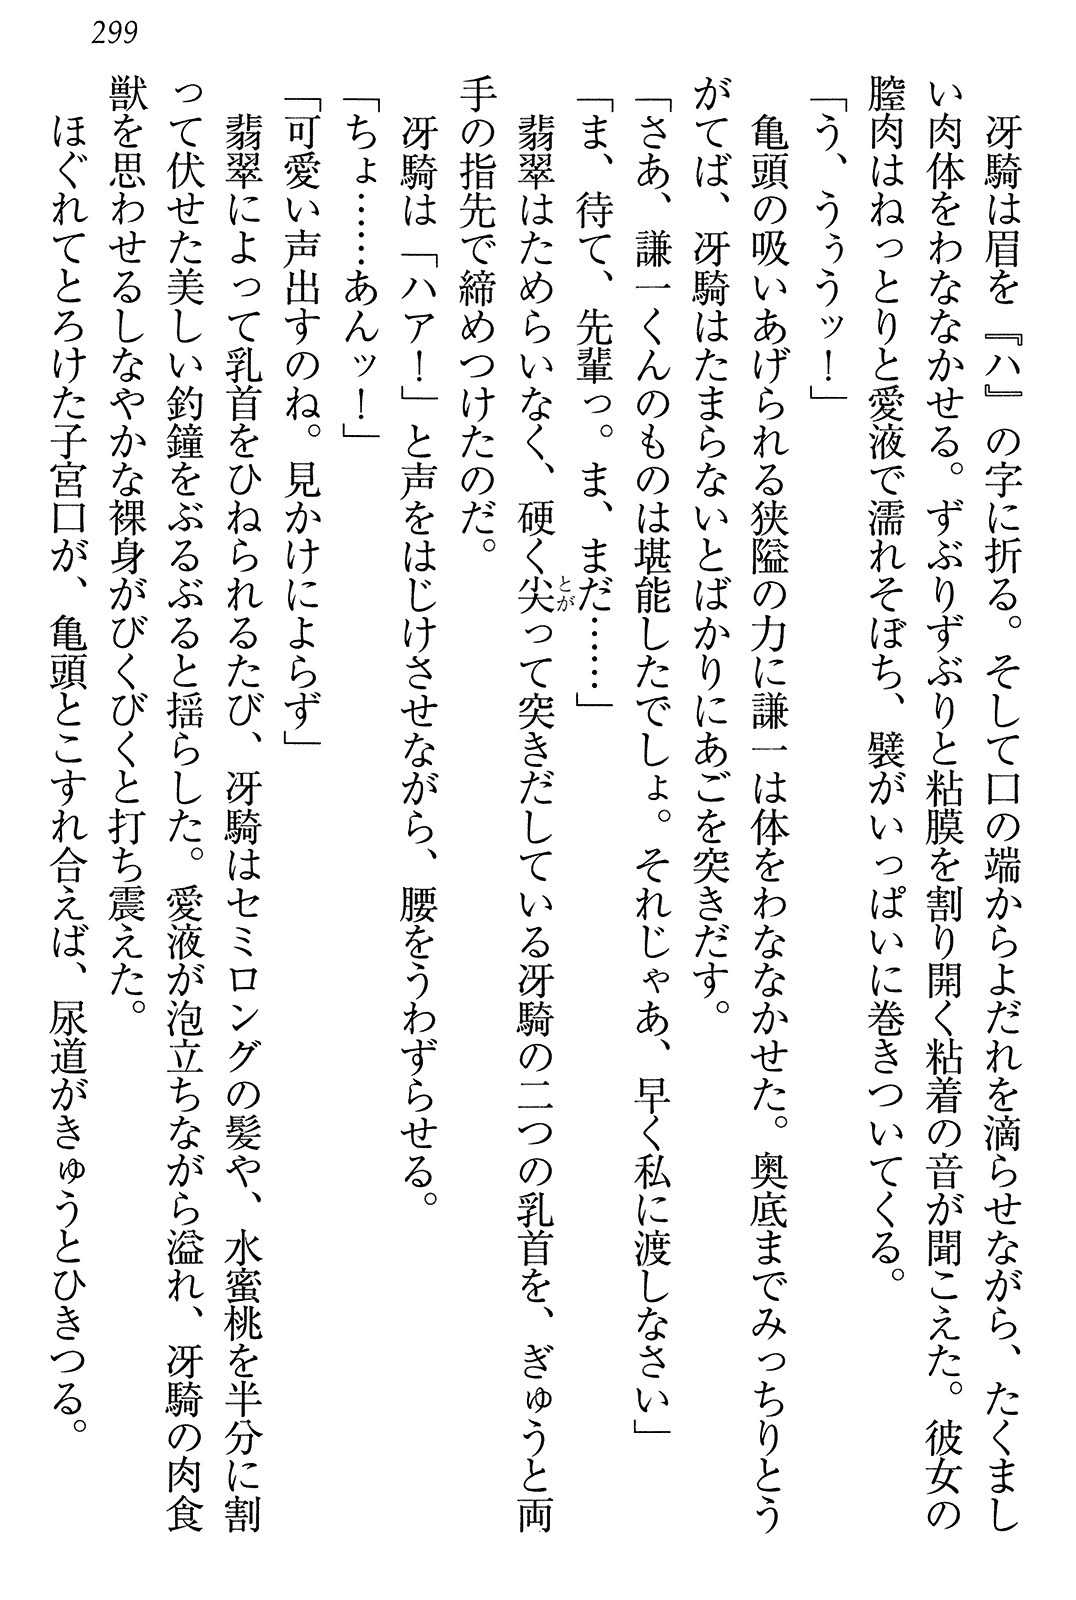 299
冴騎は眉を『ハ』の字に折る。そして口の端からよだれを滴らせながら、たくまし
い肉体をわななかせる。ずぶりずぶりと粘膜を割り開く粘着の音が聞こえた。彼女の
膣肉はねっとりと愛液で濡れそぼち、襞がいっぱいに巻きついてくる。
「う、うぅうッ！」
亀頭の吸いあげられる狭隘の力に謙一は体をわななかせた。奥底までみっちりとう
がてば、冴騎はたまらないとばかりにあごを突きだす。
「さあ、謙一くんのものは堪能したでしょ。それじゃあ、早く私に渡しなさい」
「ま、待て、先輩っ。ま、まだ……」
翡翠はためらいなく、硬く尖とがって突きだしている冴騎の二つの乳首を、ぎゅうと両
手の指先で締めつけたのだ。
冴騎は「ハア！」と声をはじけさせながら、腰をうわずらせる。
「ちょ……あんッ！」
「可愛い声出すのね。見かけによらず」
翡翠によって乳首をひねられるたび、冴騎はセミロングの髪や、水蜜桃を半分に割
って伏せた美しい釣鐘をぶるぶると揺らした。愛液が泡立ちながら溢れ、冴騎の肉食
獣を思わせるしなやかな裸身がびくびくと打ち震えた。
ほぐれてとろけた子宮口が、亀頭とこすれ合えば、尿道がきゅうとひきつる。